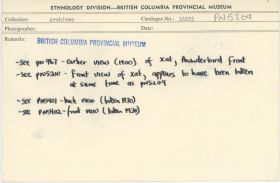 ETHNOLOGY DIVISION—BRITISH COLUMBIA PROVINCIAL MUSEUM
Collection: Archives Catalogue No. 16285 PN5209
Photographer: Date:
Remarks: BRITISH COLUMBIA PROVINCIAL MUSEUM
-see pn 967 - earlier view (1900) of xat, Thunderbird front
-see pn5210 - front view of xat, appears to have been taken
at same time as pn5209
-see PN5101 - back view (taken 1930)
-see PN5102 - front view (taken 1930)